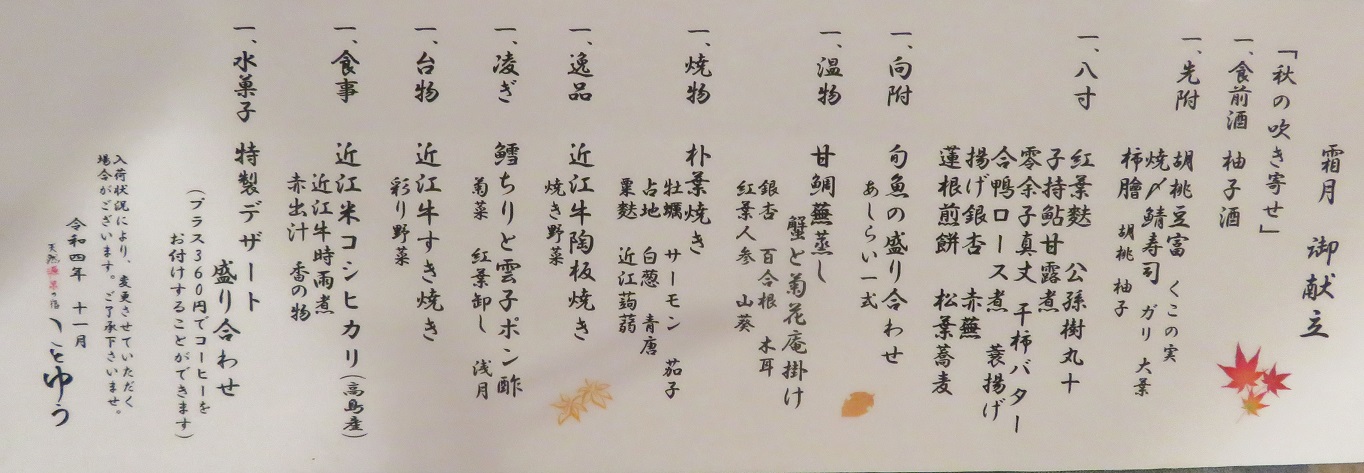 霜月 御献立
「秋の吹き寄せ」
一、食前酒 柚子酒
一、先附 胡桃豆富 くこの実
焼〆鯖寿司 ガリ 大葉
柿膾 胡桃 柚子
一、八寸 紅葉麩 公孫樹丸十
子持鮎甘露煮
零余子真丈 干柿バター
合鴨ロース煮 蓑揚げ
揚げ銀杏 赤蕪
蓮根煎餅 松葉蕎麦
一、向附 旬魚の盛り合わせ
あしらい一式
一、温物 甘鯛蕪蒸し
蟹と菊花庵掛け
銀杏 百合根 木耳
紅葉人参 山葵
一、焼物 朴葉焼き
牡蠣 サーモン 茄子
占地 白葱 青唐
粟麩 近江蒟蒻
一、逸品 近江牛陶板焼き
焼き野菜
一、凌ぎ 鱈ちりと雲子ポン酢
菊菜 紅葉卸し 浅月
一、台物 近江牛すき焼き
彩り野菜
一、食事 近江米コシヒカリ(高島産)
近江牛時雨煮
赤出汁 香の物
一、水菓子 特製デザート
盛り合わせ
(プラス360円でコーヒーを
お付けすることができます)
入荷状況により、変更させていただく
場合がございます。ご了承下さいませ。
令和四年 十一月
天然温泉の宿 ことゆう